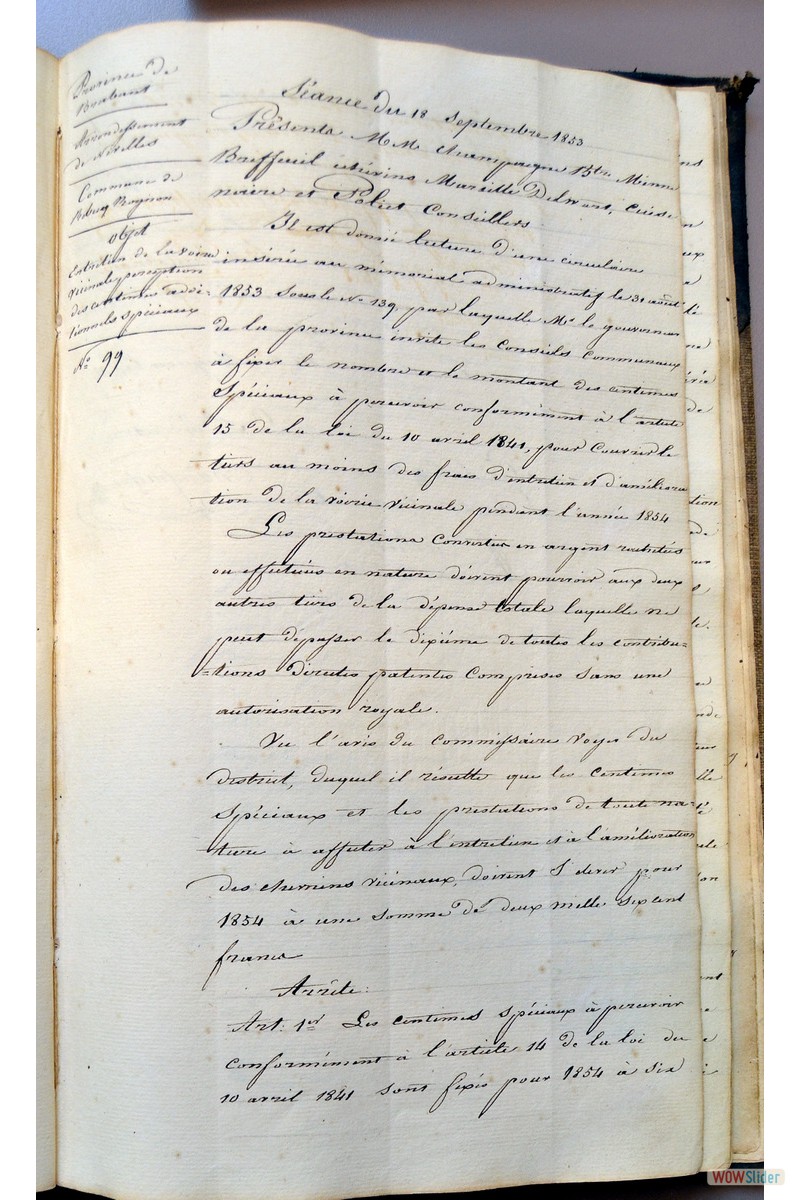 Province de
Brabant
Arrondissement
de Nivelles
Commune de
Bibecq Rognon
objet
Entretien de la voirie
vicinale, perception
des centimes addi-
tionnels spéciaux
No 99
Séance du 18 Septembre 1853
Présents MM Champagne Bte Minne
Breffeuil échevins Marsille Delwart,
noire et Poliet Conseillers.
Il est donné lecture d'une circulaire
insérée au mémorial administratif le 31 août
1853 sous le No 139, par laquelle Mr le gouverneur
de la province invite les Conseils Communaux
à fixer le nombre et le montant des centimes
Spéciaux à percevoir conformément à l'article
15 de la loi du 10 avril 1841, pour couvrir le
tiers au moins des frais d'entretien et d'améliora
tion de la voirie vicinale pendant l'année 1854
Les prestations converties en argent
ou effectuées en nature doivent pourvoir aux deux
autres tiers de la dépense totale laquelle ne
peut dépasser le dixième de toutes les contribu=
=tions directes patentes comprises sans une
autorisation royale.
Vu l'avis du commissaire voyer du
district, duquel il résulte que les centimes
Spéciaux et les prestations de toute na=
ture à affecter à l'entretien et à l'amélioration
des chemins vicinaux, doivent S'élever pour
1854 à une somme de deux mille sept cent
francs
Arrête:
Art: 1er Les centimes spéciaux à percevoir
conformément à l'article 14 de la loi du
10 avril 1841 sont fixés pour 1854 à six
WOWSlider